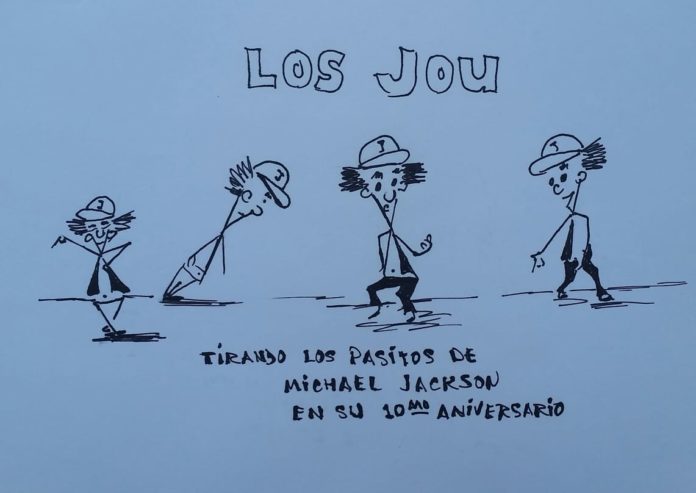 LOS JOU
J
J
J
J
TIRANDO LOS PASITOS DE
MICHAEL JACKSON
EN SU 10MO ANIVERSARIO